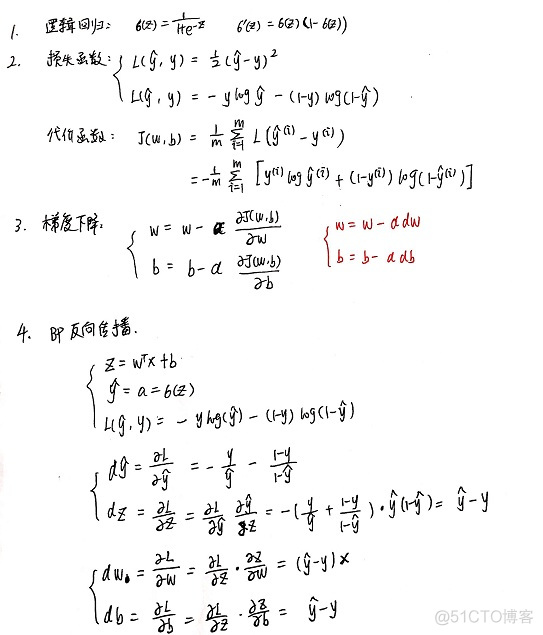 1. 逻辑回归: σ(z) = 1/(1+e^-z) σ'(z) = σ(z)(1-σ(z))
2. 损失函数: { L(ŷ, y) = 1/2 (ŷ-y)²
L(ŷ, y) = - y log ŷ - (1-y) log(1-ŷ)
代价函数: J(w,b) = 1/m Σ_{i=1}^{m} L(ŷ^(i) - y^(i))
= -1/m Σ_{i=1}^{m} [y^(i) log ŷ^(i) + (1-y^(i)) log(1-ŷ^(i))]
3. 梯度下降: { w = w - α ∂J(w,b)/∂w { w = w - α dw
b = b - α ∂J(w,b)/∂b b = b - α db
4. BP 反向传播.
{ z = wᵀx + b
ŷ = a = σ(z)
L(ŷ, y) = - y log(ŷ) - (1-y) log(1-ŷ)
{ dŷ = ∂L/∂ŷ = - y/ŷ - (1-y)/(1-ŷ)
dz = ∂L/∂z = ∂L/∂ŷ ∂ŷ/∂z = -(y/ŷ + (1-y)/(1-ŷ)) · ŷ(1-ŷ) = ŷ - y
{ dw = ∂L/∂w = ∂L/∂z · ∂z/∂w = (ŷ-y) x
db = ∂L/∂b = ∂L/∂z · ∂z/∂b = ŷ - y
@51CTO博客